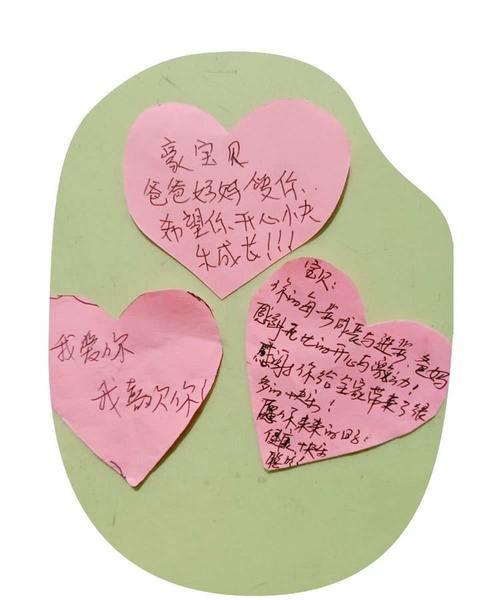 豪宝贝
爸爸妈妈爱你、
希望你开心快
乐成长!!!
我爱你
我喜欢你!
宝贝:
你的每一步成长与进步爸妈
感到无比的开心与激动!
感谢你给全家带来了很
多的快乐!
愿你未来的日子:
健康 快乐